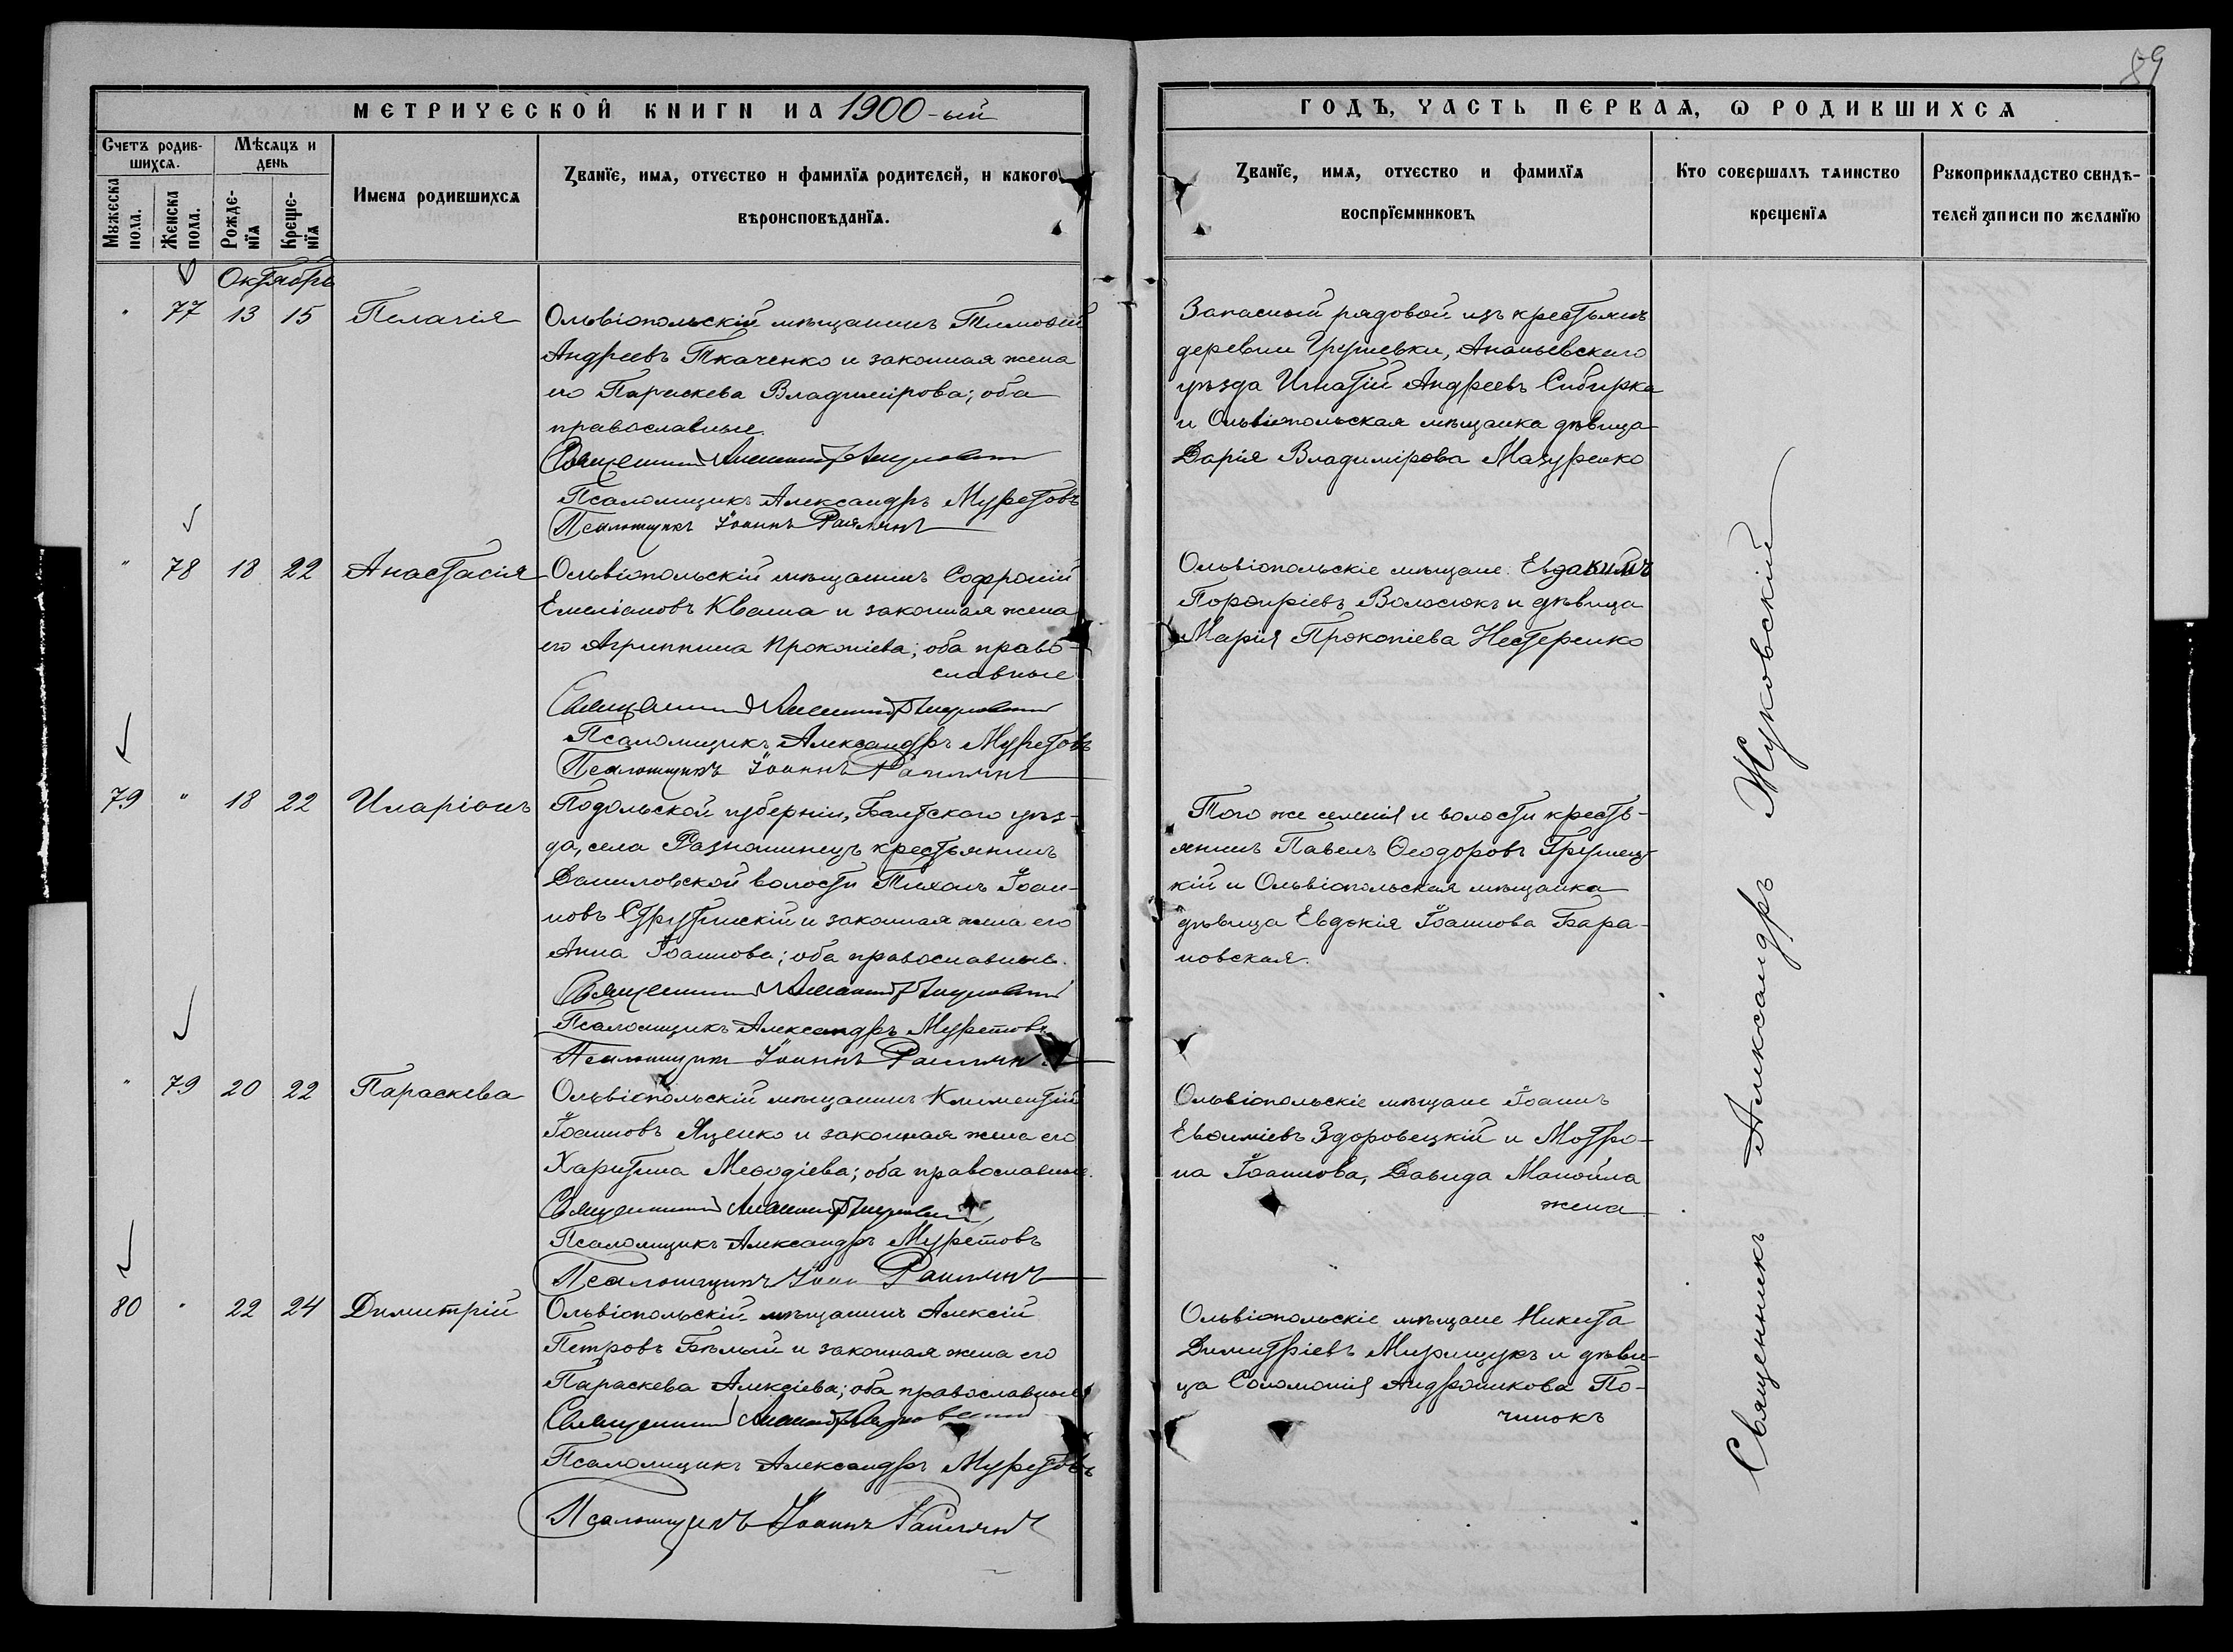 89
МЕТРИЧЕСКОЙ КНИГИ НА 1900-ый
ГОДЪ, ЧАСТЬ ПЕРВАЯ, Ѡ РОДИВШИХСѦ
Счетъ родив-
шихсѧ.
Мѣсѧцъ и
день
Мужеска
пола.
Женска
пола.
Рожде-
нїѧ
Креще-
нїѧ
Имена родившихсѧ
Званїе, имѧ, отчество и фамилїѧ родителей, и какого
вѣроисповѣданїѧ.
Званїе, имѧ, отчество и фамилїѧ
воспрїемниковъ
Кто совершалъ таинство
крещенїѧ
Рукоприкладство свидѣ-
телей записи по желанїю
Октябрь
" 77 13 15 Пелагія
Ольвіопольскій мѣщанинъ Тимоѳей
Андреевъ Ткаченко и законная жена
его Параскева Владимірова; оба
православные.
Священникъ
Псаломщикъ Александръ Муретовъ
Псаломщикъ Іоаннъ
Запасный рядовой изъ крестьянъ
деревни Грушевки, Ананьевскаго
уѣзда Игнатій Андреевъ Сибирка
и Ольвіопольская мѣщанка дѣвица
Дарія Владимірова Мазуренко
" 78 18 22 Анастасія
Ольвіопольскій мѣщанинъ Софроній
Емеліановъ Кваша и законная жена
его Агриппина Прокопіева; оба право-
славные
Священникъ
Псаломщикъ Александръ Муретовъ
Псаломщикъ Іоаннъ
Ольвіопольскіе мѣщане Евдакимъ
Порфиріевъ Волосюкъ и дѣвица
Марія Прокопіева Нестеренко
79 " 18 22 Иларіонъ
Подольской губерніи, Балтскаго уѣз-
да, села крестьянинъ
Даниловской волости Тихонъ Іоан-
новъ и законная жена его
Анна Іоаннова; оба православные.
Священникъ
Псаломщикъ Александръ Муретовъ
Псаломщикъ Іоаннъ
Того же селенія и волости кресть-
янинъ Павелъ Ѳеодоровъ Грушец-
кій и Ольвіопольская мѣщанка
дѣвица Евдокія Іоаннова Бара-
новская.
" 79 20 22 Параскева
Ольвіопольскій мѣщанинъ Климентій
Іоанновъ Яценко и законная жена его
Харитина Меѳодіева; оба православные.
Священникъ
Псаломщикъ Александръ Муретовъ
Псаломщикъ
Ольвіопольскіе мѣщане Іоаннъ
Евѳиміевъ Здоровецкій и Мотро-
на Іоаннова, Давида Манойла
жена
80 " 22 24 Димитрій
Ольвіопольскій мѣщанинъ Алексій
Петровъ Бѣлый и законная жена его
Параскева Алексіева; оба православные
Священникъ
Псаломщикъ Александръ Муретовъ
Псаломщикъ Іоаннъ
Ольвіопольскіе мѣщане Никита
Димитріевъ Мирищукъ и дѣви-
ца Соломонія Андроникова По-
чинокъ
Священникъ Александръ Жуковскій